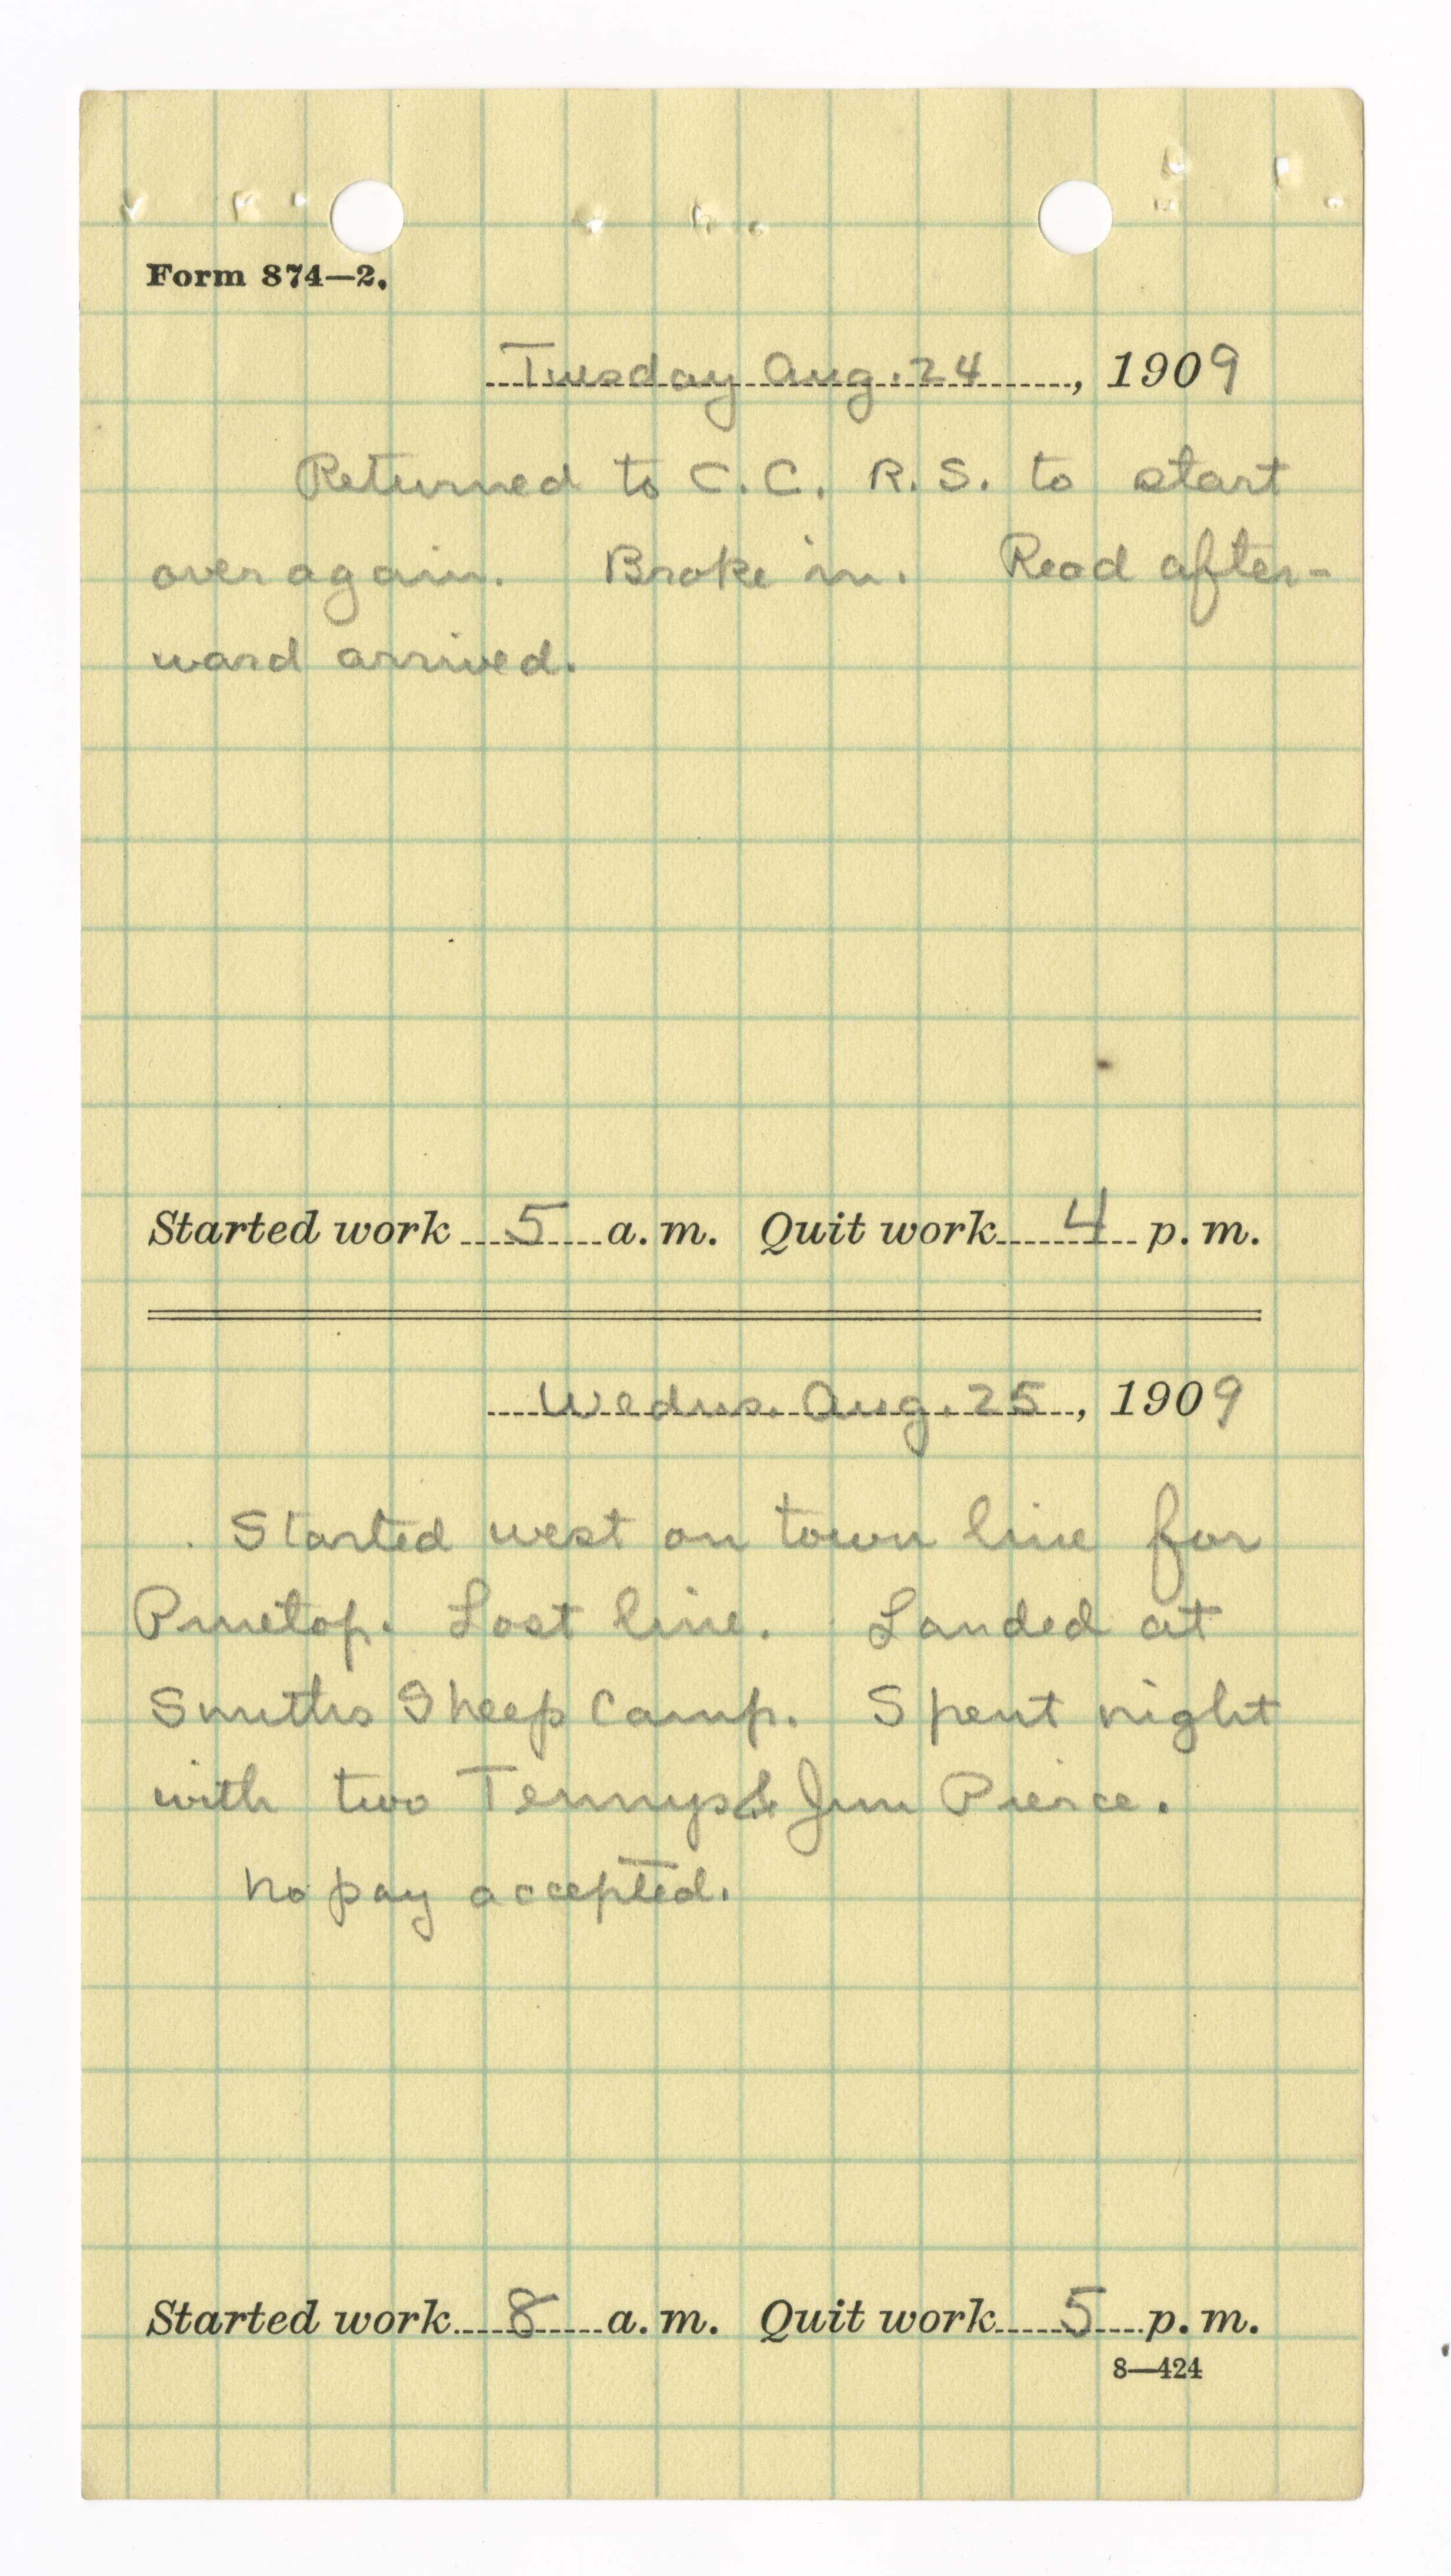 Form 874—2.
Tuesday Aug. 24, 1909
Returned to C.C. R.S. to start
over again. Broke in. Read after-
ward arrived.
Started work 5 a. m. Quit work 4 p. m.
Wedns. Aug. 25, 1909
Started west on town line for
Pinetop. Lost line. Landed at
Smiths Sheep Camp. Spent night
with two Tennys & Jim Pierce.
No pay accepted.
Started work 8 a. m. Quit work 5 p. m.
8—424